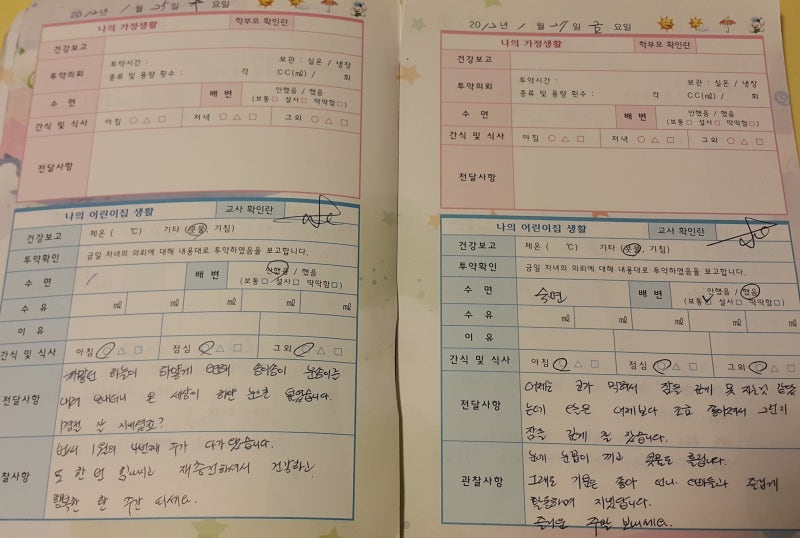 2012년 1월 25일 수요일
나의 가정생활 학부모 확인란
건강보고
투약의뢰 투약시간 : 보관 : 실온 / 냉장
종류 및 용량 횟수 : 각 CC(㎖) / 회
수 면 배 변 안했음 / 했음
(보통□ 설사□ 딱딱함□)
간식 및 식사 아침 ○ △ □ 저녁 ○ △ □ 그외 ○ △ □
전달사항
나의 어린이집 생활 교사 확인란
건강보고 체온 ( ℃) 기타 (콧물, 기침)
투약확인 금일 자녀의 의뢰에 대해 내용대로 투약하였음을 보고합니다.
수 면 배 변 안했음 / 했음
(보통□ 설사□ 딱딱함□)
수 유 ㎖ ㎖ ㎖ ㎖ ㎖
이 유
간식 및 식사 아침 ○ △ □ 점심 ○ △ □ 그외 ○ △ □
전달사항
하늘이 하얗게 눈송이를
온 세상이 하얀 눈으로
잘 지내셨죠?
찰사항 벌써 1월의 4번째 주가 다가왔습니다.
또 한 번 힘내시고 재충전하셔서 건강하고
행복한 한 주간 되세요.
2012년 1월 27일 금요일
나의 가정생활 학부모 확인란
건강보고
투약의뢰 투약시간 : 보관 : 실온 / 냉장
종류 및 용량 횟수 : 각 CC(㎖) / 회
수 면 배 변 안했음 / 했음
(보통□ 설사□ 딱딱함□)
간식 및 식사 아침 ○ △ □ 저녁 ○ △ □ 그외 ○ △ □
전달사항
나의 어린이집 생활 교사 확인란
건강보고 체온 ( ℃) 기타 (콧물, 기침)
투약확인 금일 자녀의 의뢰에 대해 내용대로 투약하였음을 보고합니다.
수 면 숙면 배 변 안했음 / 했음
(보통□ 설사□ 딱딱함□)
수 유 ㎖ ㎖ ㎖ ㎖ ㎖
이 유
간식 및 식사 아침 ○ △ □ 점심 ○ △ □ 그외 ○ △ □
전달사항 어제는 코가 막혀서 잠을 깊게 못 자는것 같았
는데 오늘은 어제보다 조금 좋아져서 그런지
잠을 깊게 잘 잤습니다.
관찰사항 눈에 눈꼽이 끼고 콧물도 흘립니다.
그래도 기분은 좋아 언니 오빠들과 즐겁게
활동하며 지냈답니다.
즐거운 주말 보내세요.